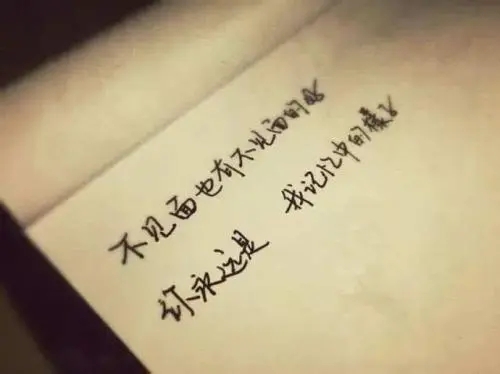 不见面也有不见面的好
你永远是 我记忆中的样子